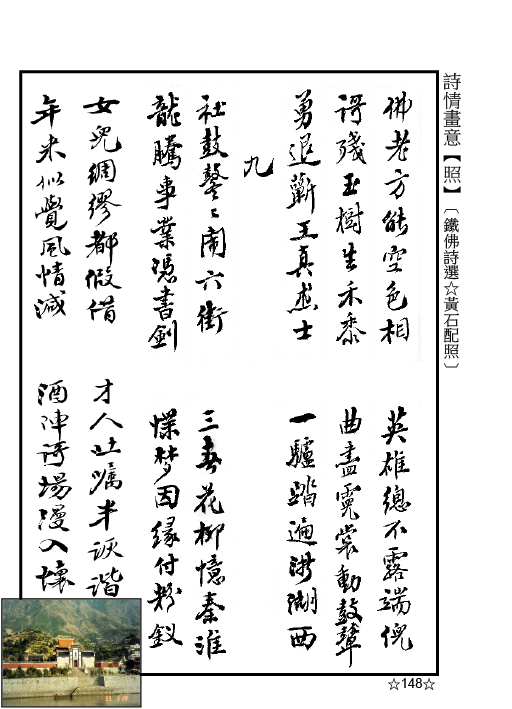 詩情畫意【照】〔鐵佛詩選☆黃石配照〕
佛老方能空色相 英雄總不露端倪
謌殘玉樹生禾黍 曲盡霓裳動鼓鼙
勇退蘄王真杰士 一驢踏遍湖西
九
社鼓鼕〻鬧六街 三春花柳憶秦淮
龍騰事業憑書劍 蝶梦因緣付粉釵
女兒綢繆都假借 才人吐嘱半詼諧
年來似覺風情減 酒陣謌場漫入懷
☆148☆